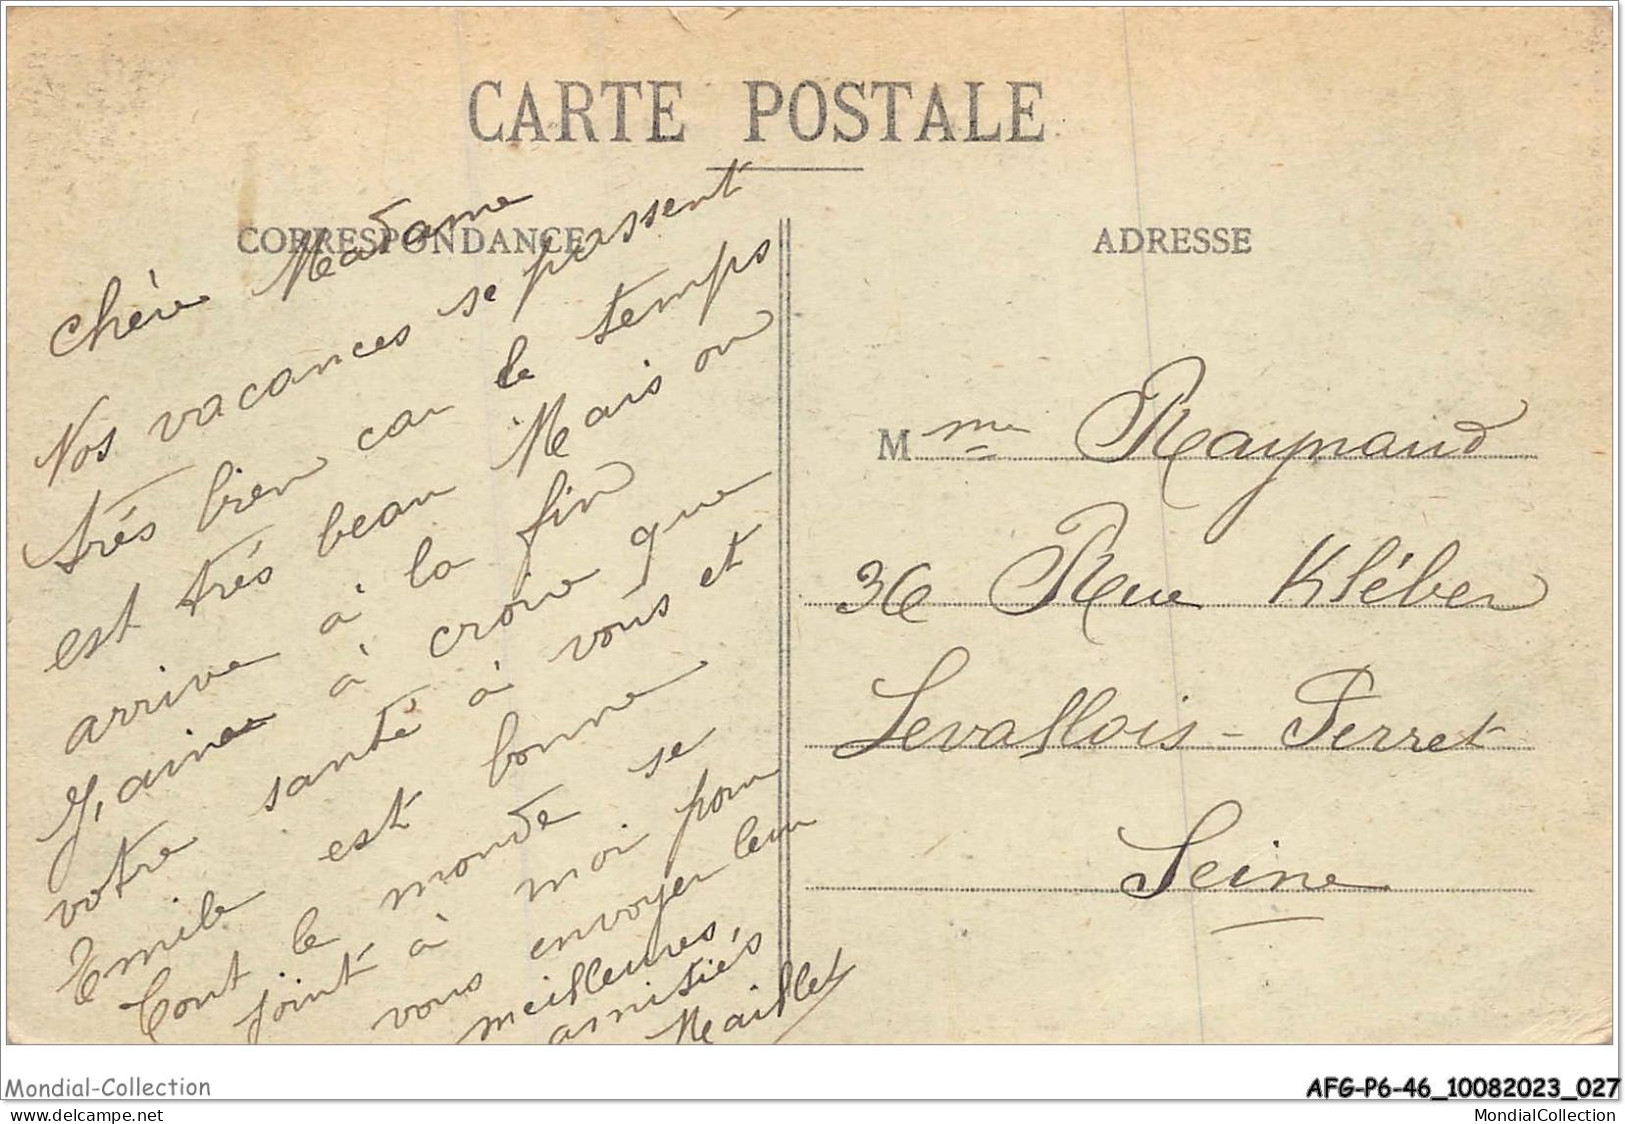 CARTE POSTALE
CORRESPONDANCE
ADRESSE
Chère Madame
Nos vacances se passent
très bien car le temps
est très beau Mais on
arrive à la fin
J'aime à croire que
votre santé à vous et
Emile est bonne
Tout le monde se
joint à moi pour
vous envoyer leur
meilleures,
amitiés
Maillet
Mme Raynaud
36 Rue Kléber
Levallois-Perret
Seine
Mondial-Collection
AFG-P6-46_10082023_027
delcampe.net
MondialCollection